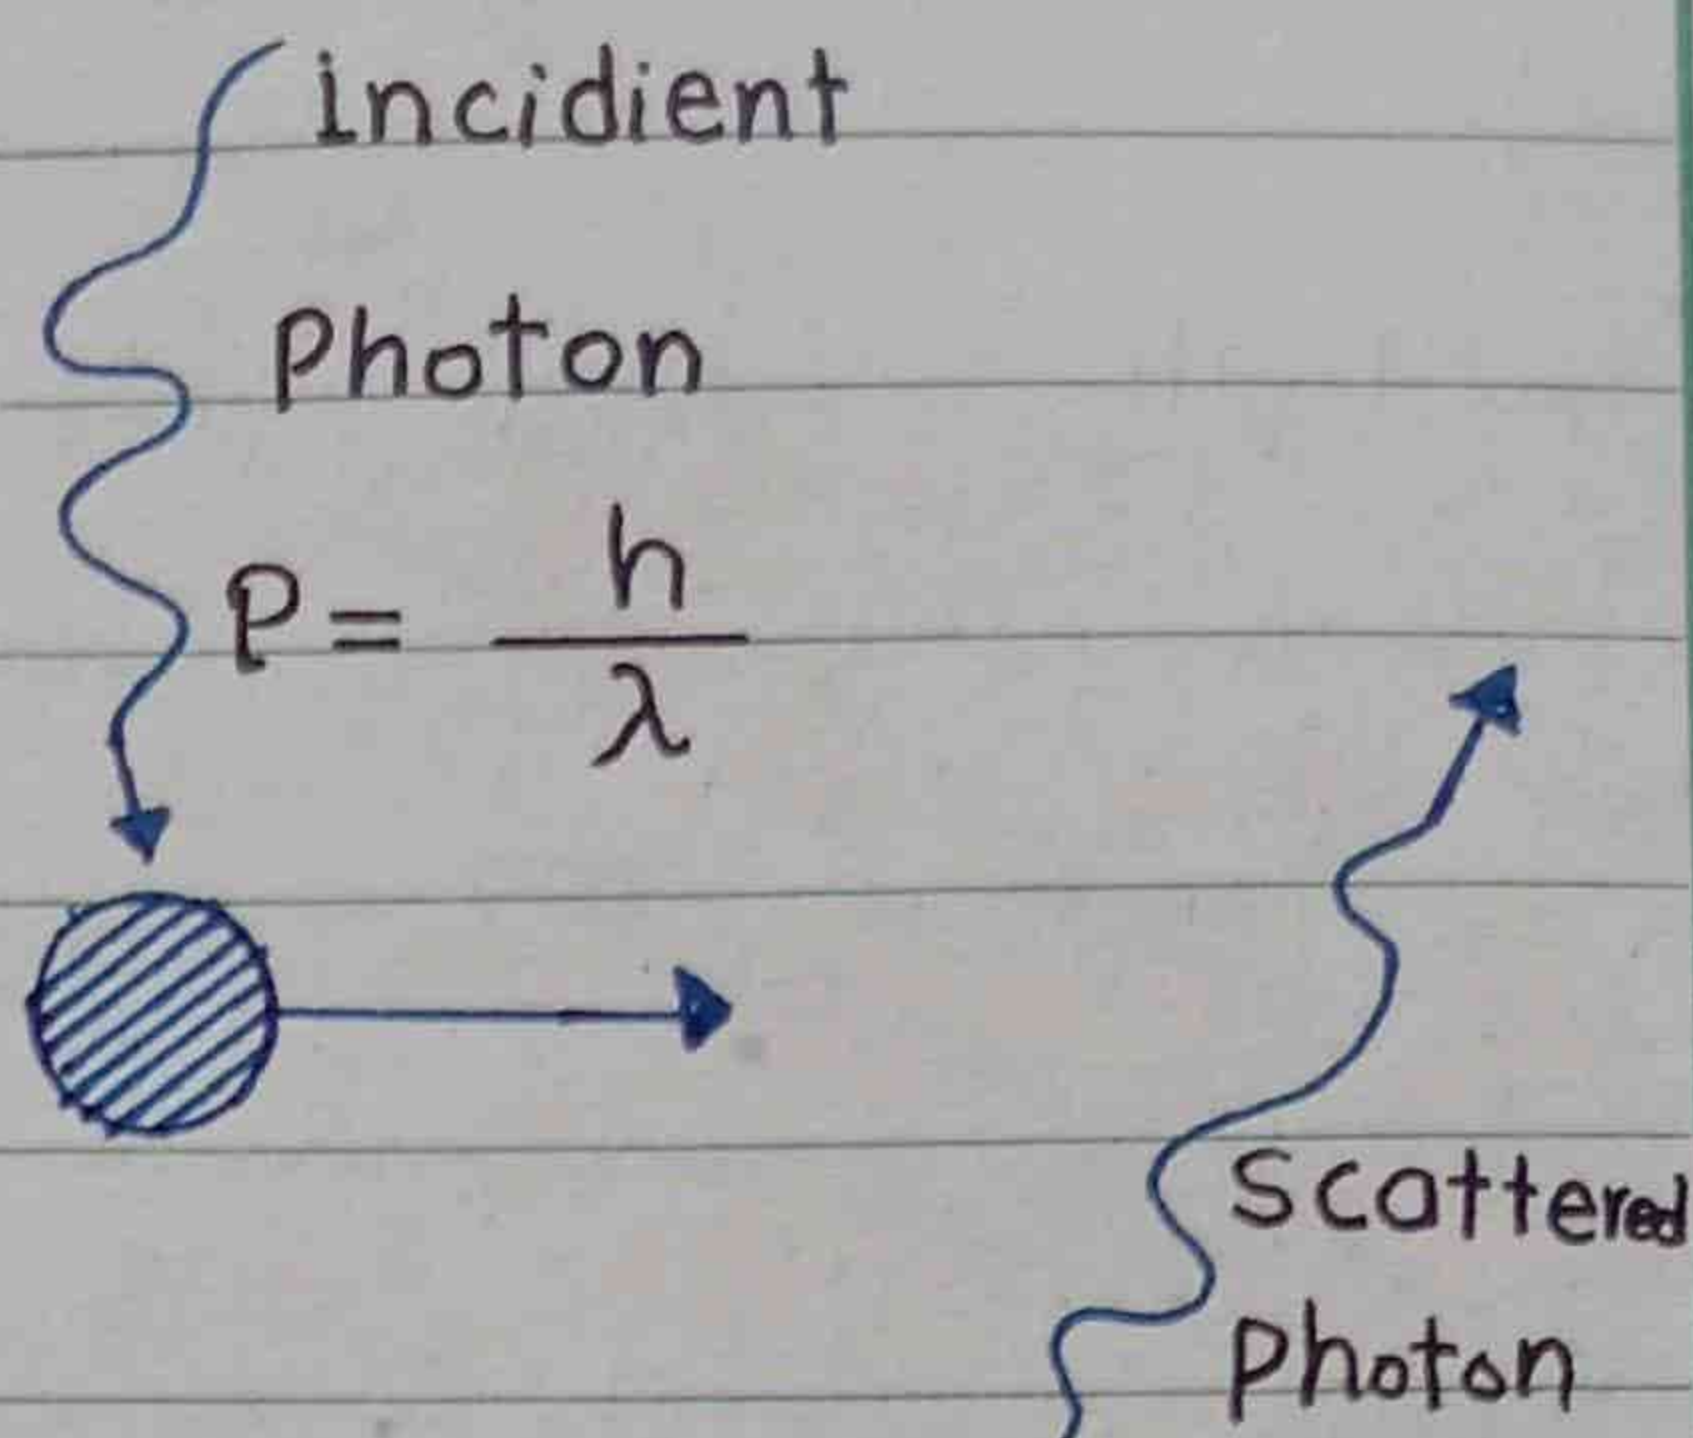 incidient
Photon
P = h
λ
Scattered
Photon